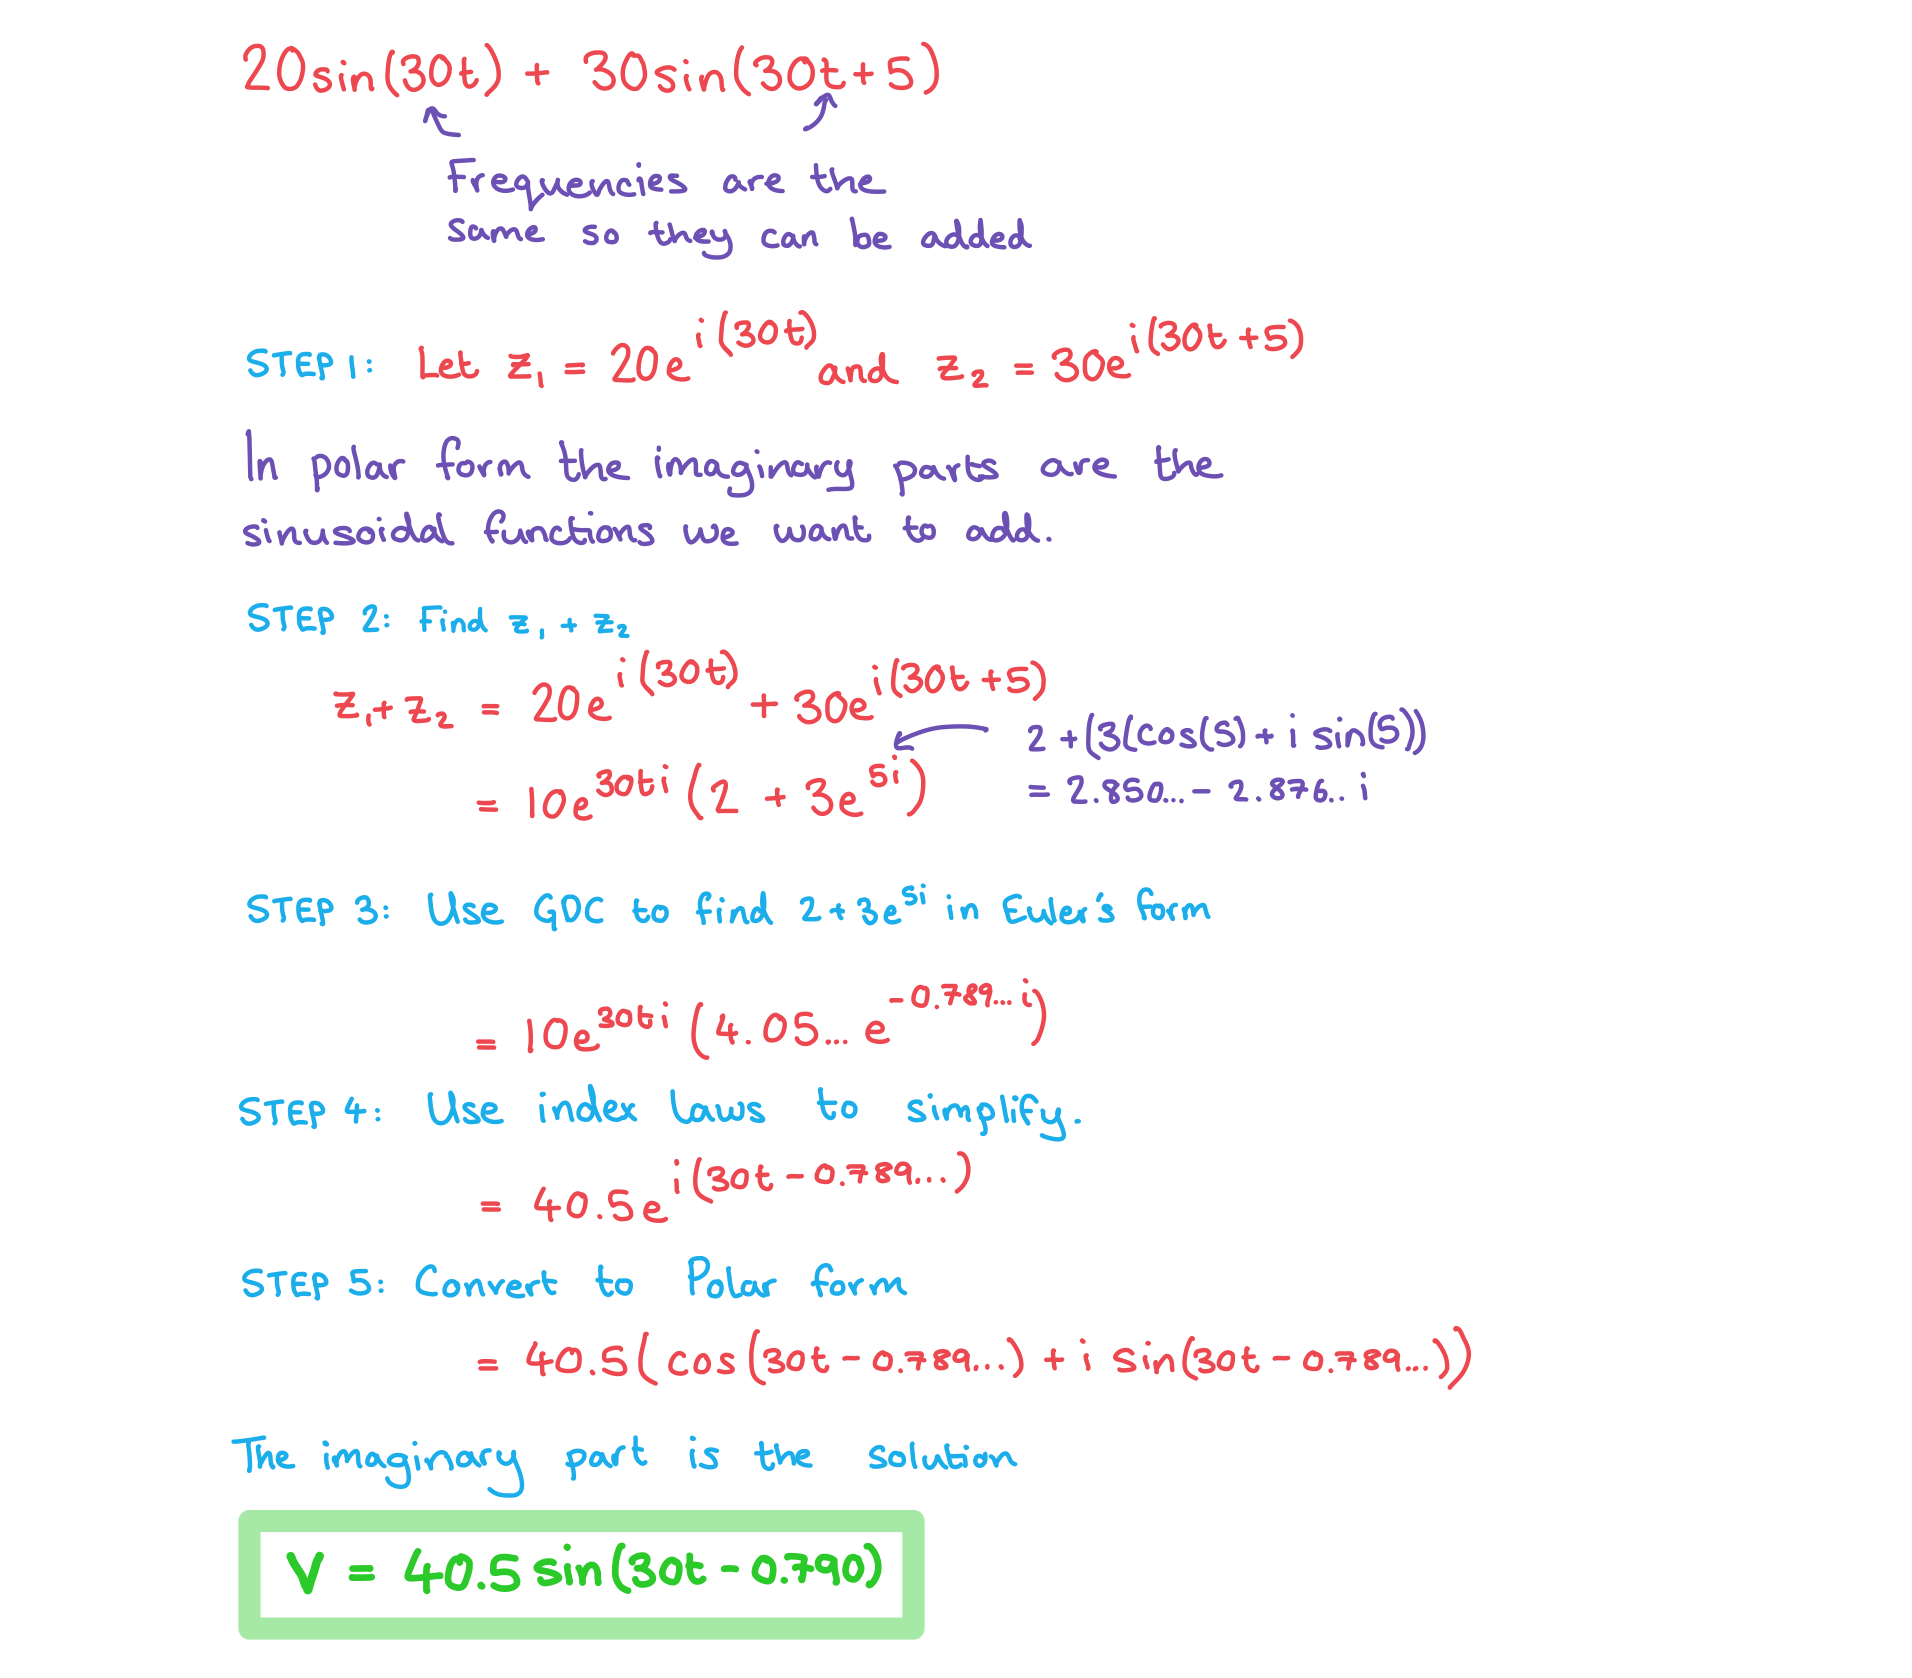 20sin(30t) + 30sin(30t+5)
Frequencies are the
same so they can be added
STEP 1: Let z₁ = 20e^i(30t) and z₂ = 30e^i(30t+5)
In polar form the imaginary parts are the
sinusoidal functions we want to add.
STEP 2: Find z₁ + z₂
z₁+ z₂ = 20e^i(30t) + 30e^i(30t+5)
2 +(3(cos(5) + i sin(5))
= 10e^30ti (2 + 3e^5i)
= 2.850... - 2.876.. i
STEP 3: Use GDC to find 2+3e^5i in Euler's form
= 10e^30ti (4.05... e^-0.789... i)
STEP 4: Use index laws to simplify.
= 40.5e^i(30t - 0.789...)
STEP 5: Convert to Polar form
= 40.5(cos(30t - 0.789...) + i sin(30t - 0.789...))
The imaginary part is the solution
V = 40.5 sin(30t - 0.790)